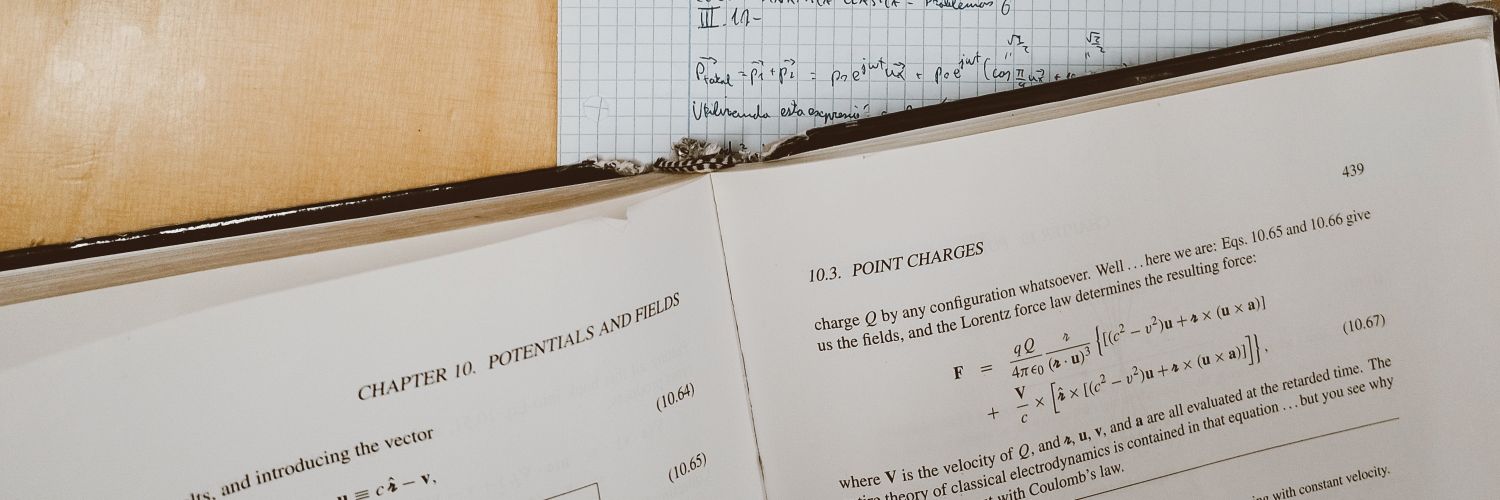 Problemas 6
III.11-
P⃗total = p⃗1 + p⃗2 = p0 e^jωt u⃗x + p0 e^jωt (cos π/4 u⃗x +
√2/2 √2/2
Utilizando esta expresió
CHAPTER 10. POTENTIALS AND FIELDS
(10.64)
lts, and introducing the vector
u ≡ c𝓇̂ − v,
(10.65)
439
10.3. POINT CHARGES
charge Q by any configuration whatsoever. Well … here we are: Eqs. 10.65 and 10.66 give
us the fields, and the Lorentz force law determines the resulting force:
F = qQ/4πϵ0 𝓇/(𝓇 · u)³ {[(c² − v²)u + 𝓇 × (u × a)]
+ V/c × [𝓇̂ × [(c² − v²)u + 𝓇 × (u × a)]]},
(10.67)
where V is the velocity of Q, and 𝓇, u, v, and a are all evaluated at the retarded time. The
entire theory of classical electrodynamics is contained in that equation … but you see why
with Coulomb's law.
with constant velocity.